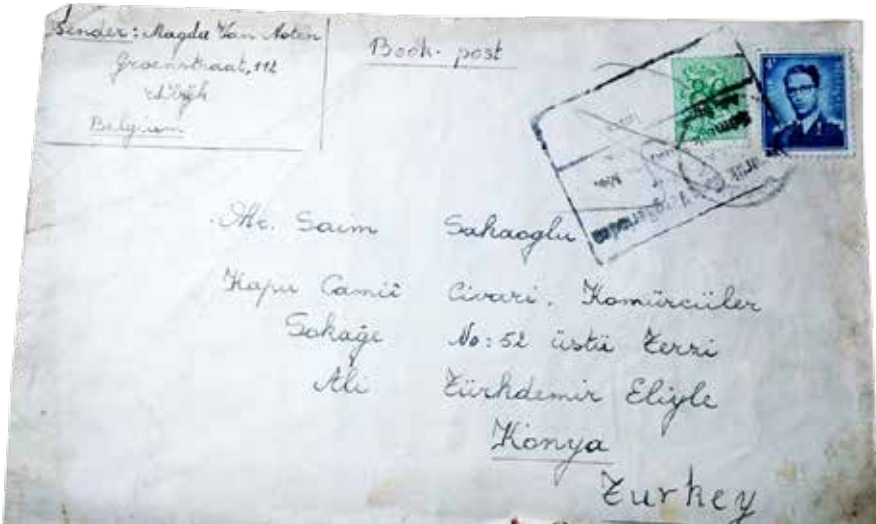 Sender: Magda Van Aoten
Groenstraat, 112
Belgium
Book-post
Mr. Saim Sakaoglu
Kapu Camiî Civari. Komürcüler
Sokağe No: 52 üstü Terzi
Ali Türkdemir Eliyle
Konya
Turkey